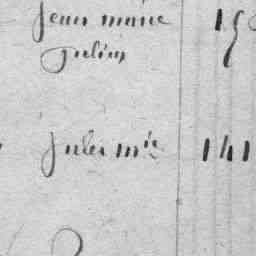 jean marie 15
julien
jules m.ie 141